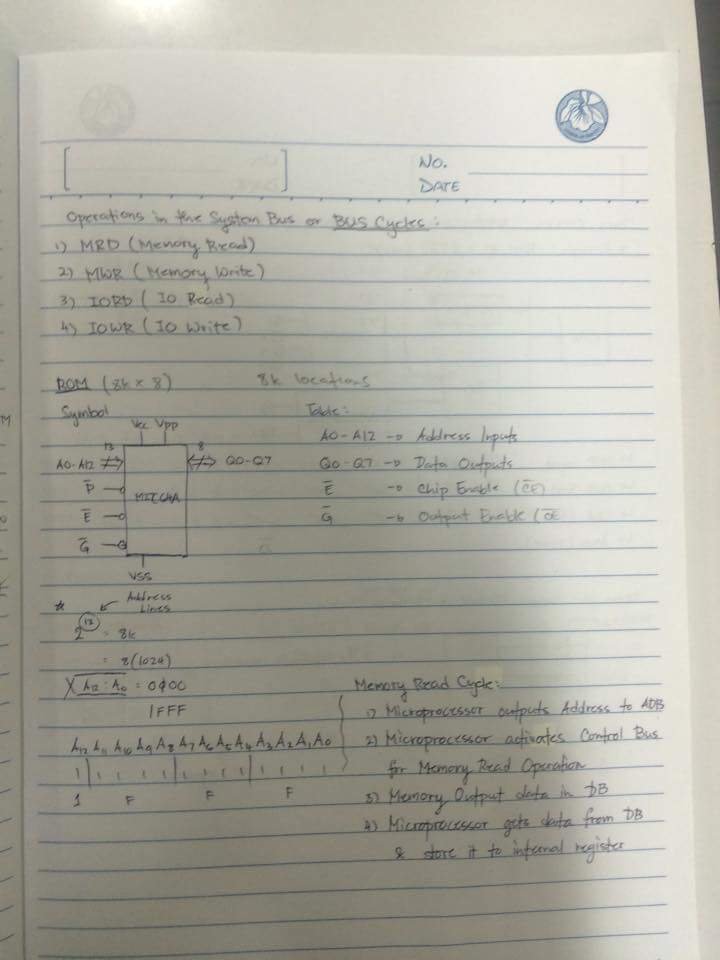 NO.
DATE
Operations in the System Bus or BUS Cycles:
1) MRD (Memory Read)
2) MWR (Memory Write)
3) IORD (IO Read)
4) IOWR (IO Write)
ROM (8k x 8) 8k locations
Symbol
Vcc Vpp
13 8
A0-A12 Q0-Q7
P̅
E̅
G̅
VSS
Table:
A0-A12 → Address Inputs
Q0-Q7 → Data Outputs
E̅ → Chip Enable (C̅E̅)
G̅ → Output Enable (O̅E̅
* Address
Lines
= 8k
= 8(1024)
A12 : A0 = 0000
1FFF
A12 A11 A10 A9 A8 A7 A6 A5 A4 A3 A2 A1 A0
1 1 1 1 1 1 1 1 1 1 1 1 1
1 F F F
Memory Read Cycle:
1) Microprocessor outputs Address to ADB
2) Microprocessor activates Control Bus
for Memory Read Operation
3) Memory Output data in DB
4) Microprocessor gets data from DB
& store it to internal register